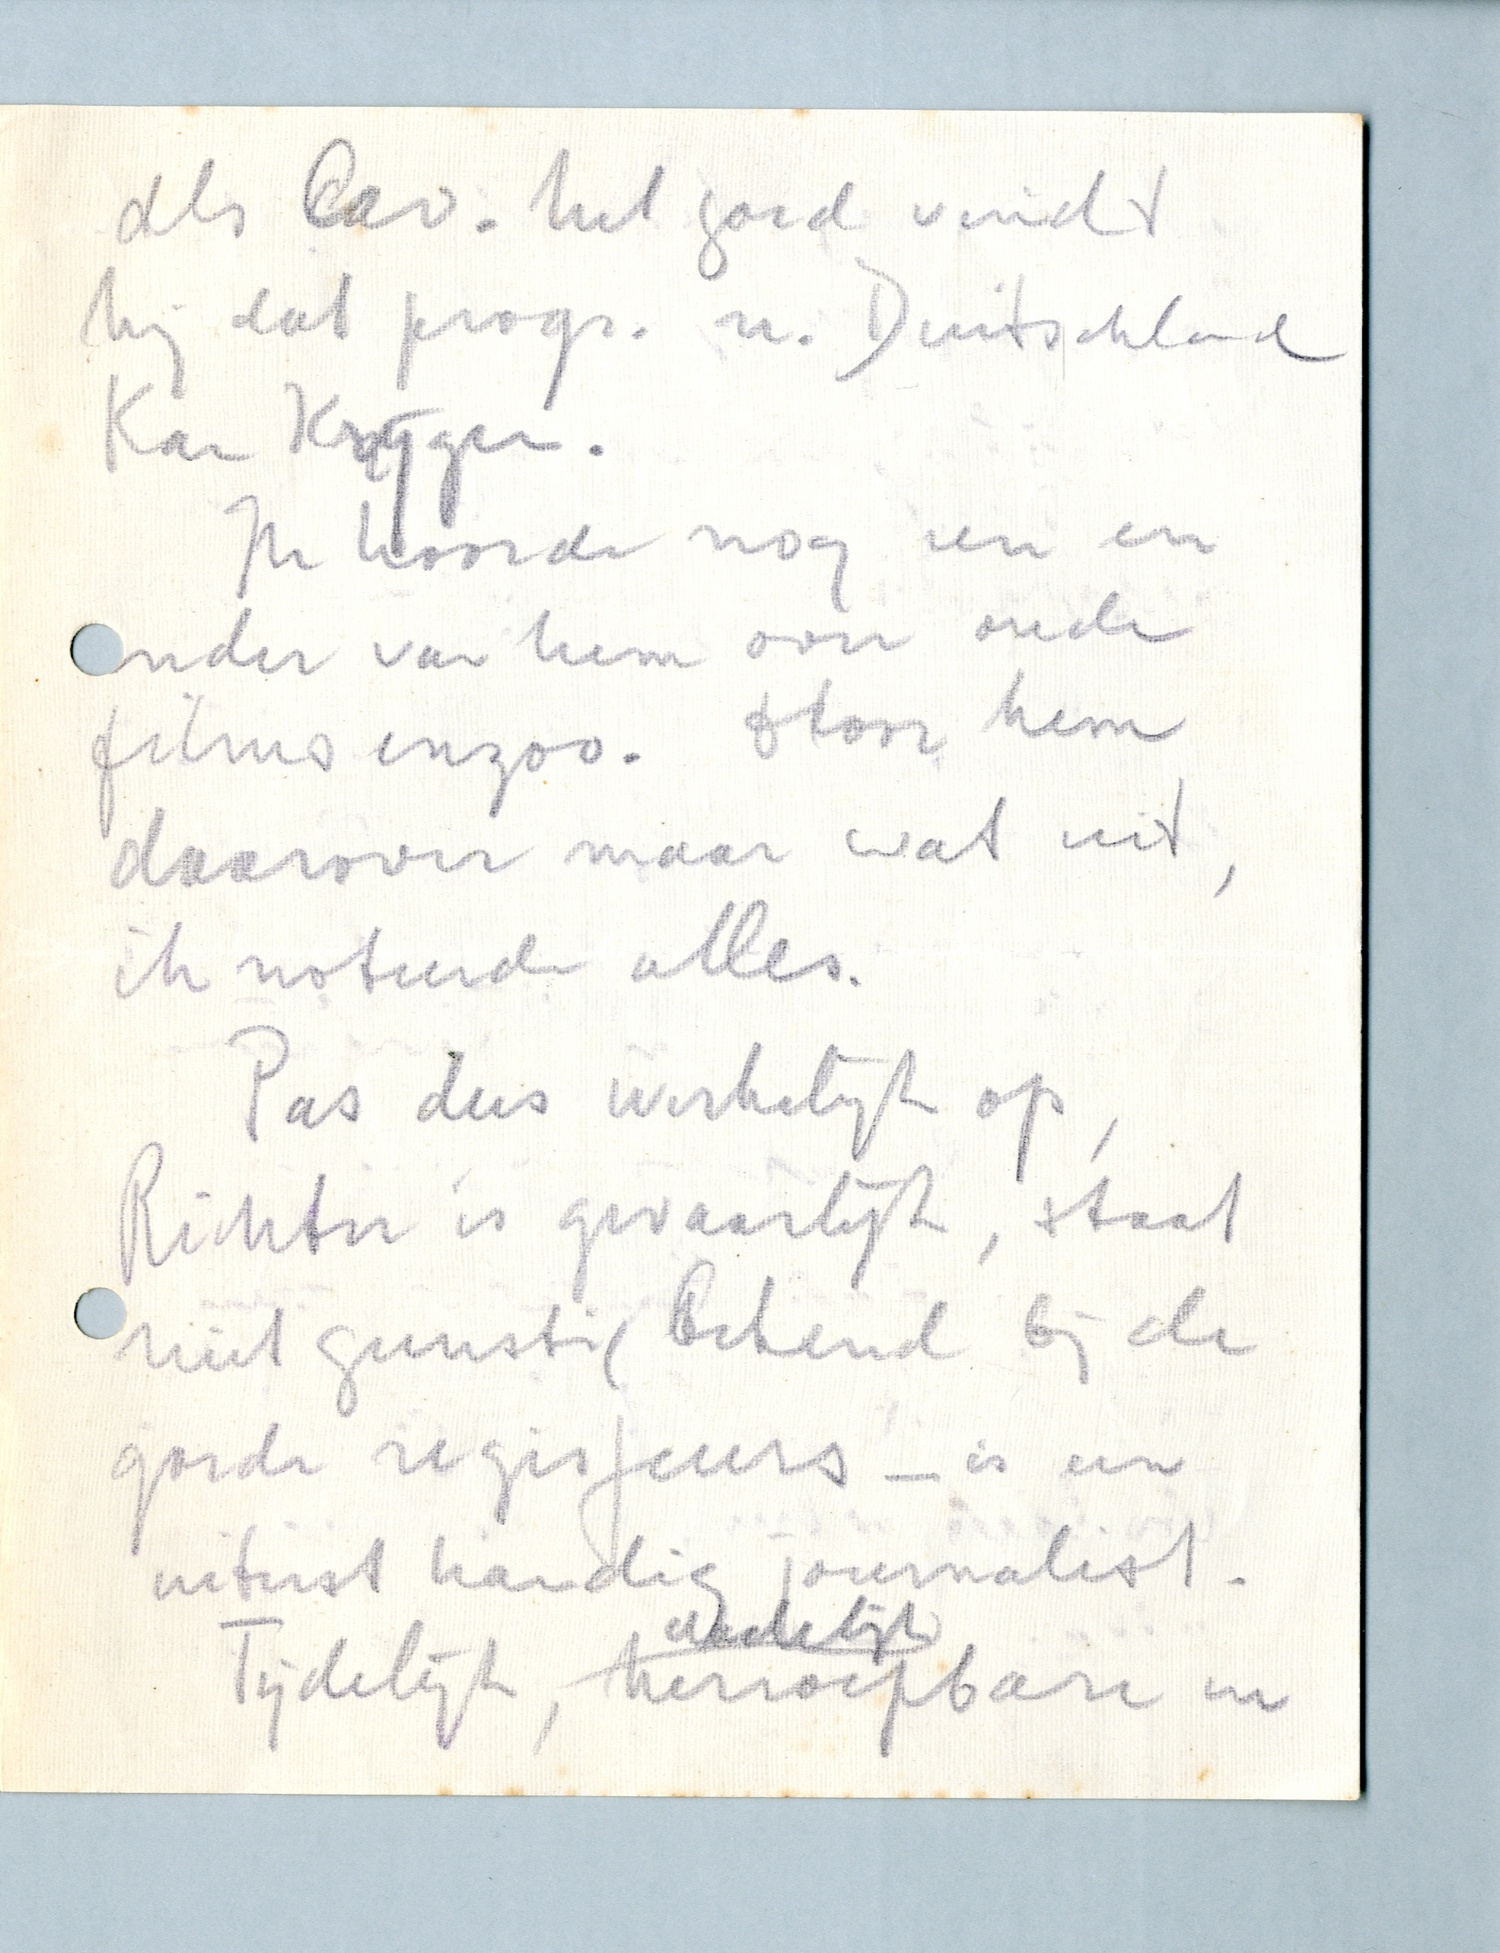 als Cav. het goed vindt
hij dat progr. n. Duitschland
kan krijgen.
Ik hoorde nog een en
ander van hem over oude
films enzoo. Hoor hem
daarover maar wat uit,
ik noteerde alles.
Pas dus werkelijk op,
Richter is gevaarlijk, staat
niet gunstig bekend bij de
goede regisseurs — is een
uiterst handig journalist.
dadelijk
Tijdelijk, herroepbare en